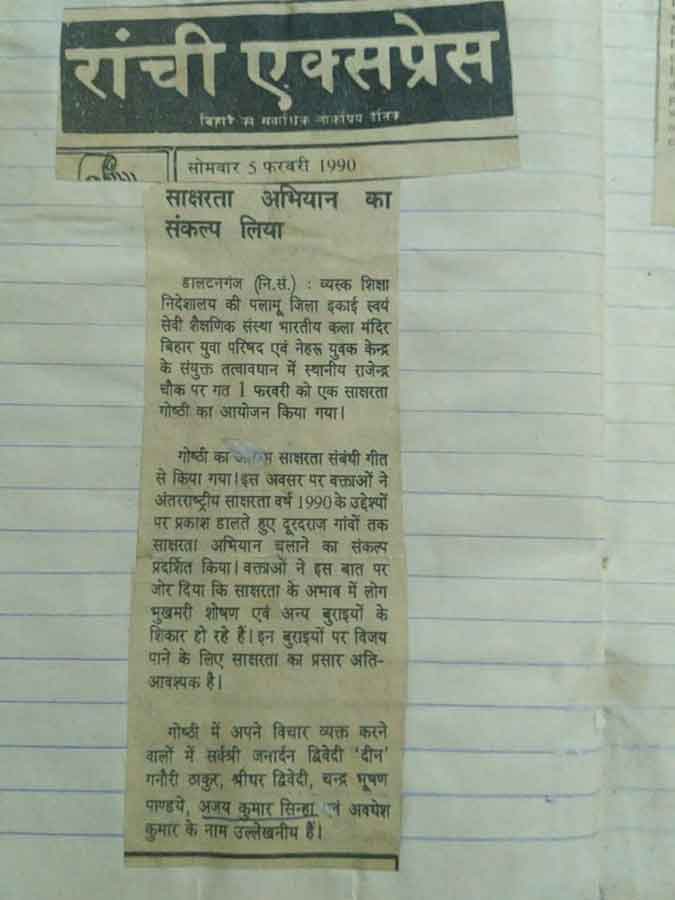 रांची एक्सप्रेस
बिहार का सर्वाधिक लोकप्रिय दैनिक
सोमवार 5 फरवरी 1990
साक्षरता अभियान का
संकल्प लिया
डालटनगंज (नि.सं.) : व्यस्क शिक्षा
निदेशालय की पलामू जिला इकाई स्वयं
सेवी शैक्षणिक संस्था भारतीय कला मंदिर
बिहार युवा परिषद एवं नेहरू युवक केन्द्र
के संयुक्त तत्वावधान में स्थानीय राजेन्द्र
चौक पर गत 1 फरवरी को एक साक्षरता
गोष्ठी का आयोजन किया गया।
गोष्ठी का साक्षरता संबंधी गीत
से किया गया।इस अवसर पर वक्ताओं ने
अंतरराष्ट्रीय साक्षरता वर्ष 1990 के उद्देश्यों
पर प्रकाश डालते हुए दूरदराज गांवों तक
साक्षरता अभियान चलाने का संकल्प
प्रदर्शित किया। वक्ताओं ने इस बात पर
जोर दिया कि साक्षरता के अभाव में लोग
भुखमरी शोषण एवं अन्य बुराइयों के
शिकार हो रहे हैं। इन बुराइयों पर विजय
पाने के लिए साक्षरता का प्रसार अति-
आवश्यक है।
गोष्ठी में अपने विचार व्यक्त करने
वालों में सर्वश्री जनार्दन द्विवेदी 'दीन'
गनौरी ठाकुर, श्रीधर द्विवेदी, चन्द्र भूषण
पाण्डये, अजय कुमार सिन्हा एवं अवधेश
कुमार के नाम उल्लेखनीय हैं।